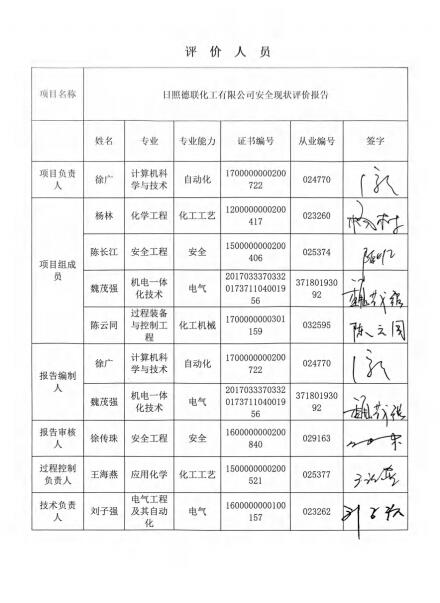 评价人员
项目名称 日照德联化工有限公司安全现状评价报告
姓名 专业 专业能力 证书编号 从业编号 签字
项目负责人 徐广 计算机科学与技术 自动化 1700000000200722 024770
项目组成员 杨林 化学工程 化工工艺 1200000000200417 023260
陈长江 安全工程 安全 1500000000200406 025374
魏茂强 机电一体化技术 电气 2017033370332017371104001956 37180193092
陈云同 过程装备与控制工程 化工机械 1700000000301159 032595 陈云同
报告编制人 徐广 计算机科学与技术 自动化 1700000000200722 024770
魏茂强 机电一体化技术 电气 2017033370332017371104001956 37180193092
报告审核人 徐传珠 安全工程 安全 1600000000200840 029163
过程控制负责人 王海燕 应用化学 化工工艺 1500000000200521 025377
技术负责人 刘子强 电气工程及其自动化 电气 1600000000100157 023262